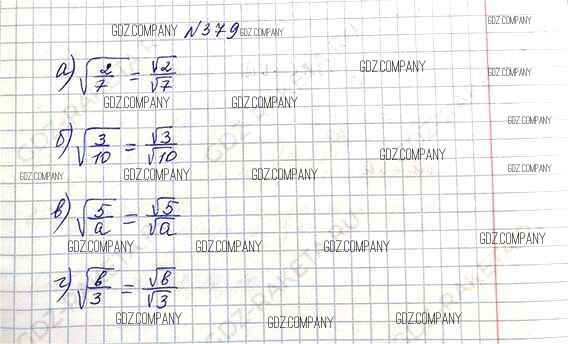 GDZ.COMPANY №379 GDZ.COMPANY GDZ.COMPANY
а) √(2/7) = √2/√7 GDZ.COMPANY GDZ.COMPANY
GDZ.COMPANY GDZ.COMPANY
GDZ.COMPANY
б) √(3/10) = √3/√10 GDZ.COMPANY
GDZ.COMPANY GDZ.COMPANY GDZ.COMPANY GDZ.COMPANY
в) √(5/a) = √5/√a
GDZ.COMPANY GDZ.COMPANY GDZ.COMPANY GDZ.COMPANY
г) √(b/3) = √b/√3
GDZ.COMPANY GDZ.COMPANY GDZ.COMPANY
GDZ-RAKETA.RU